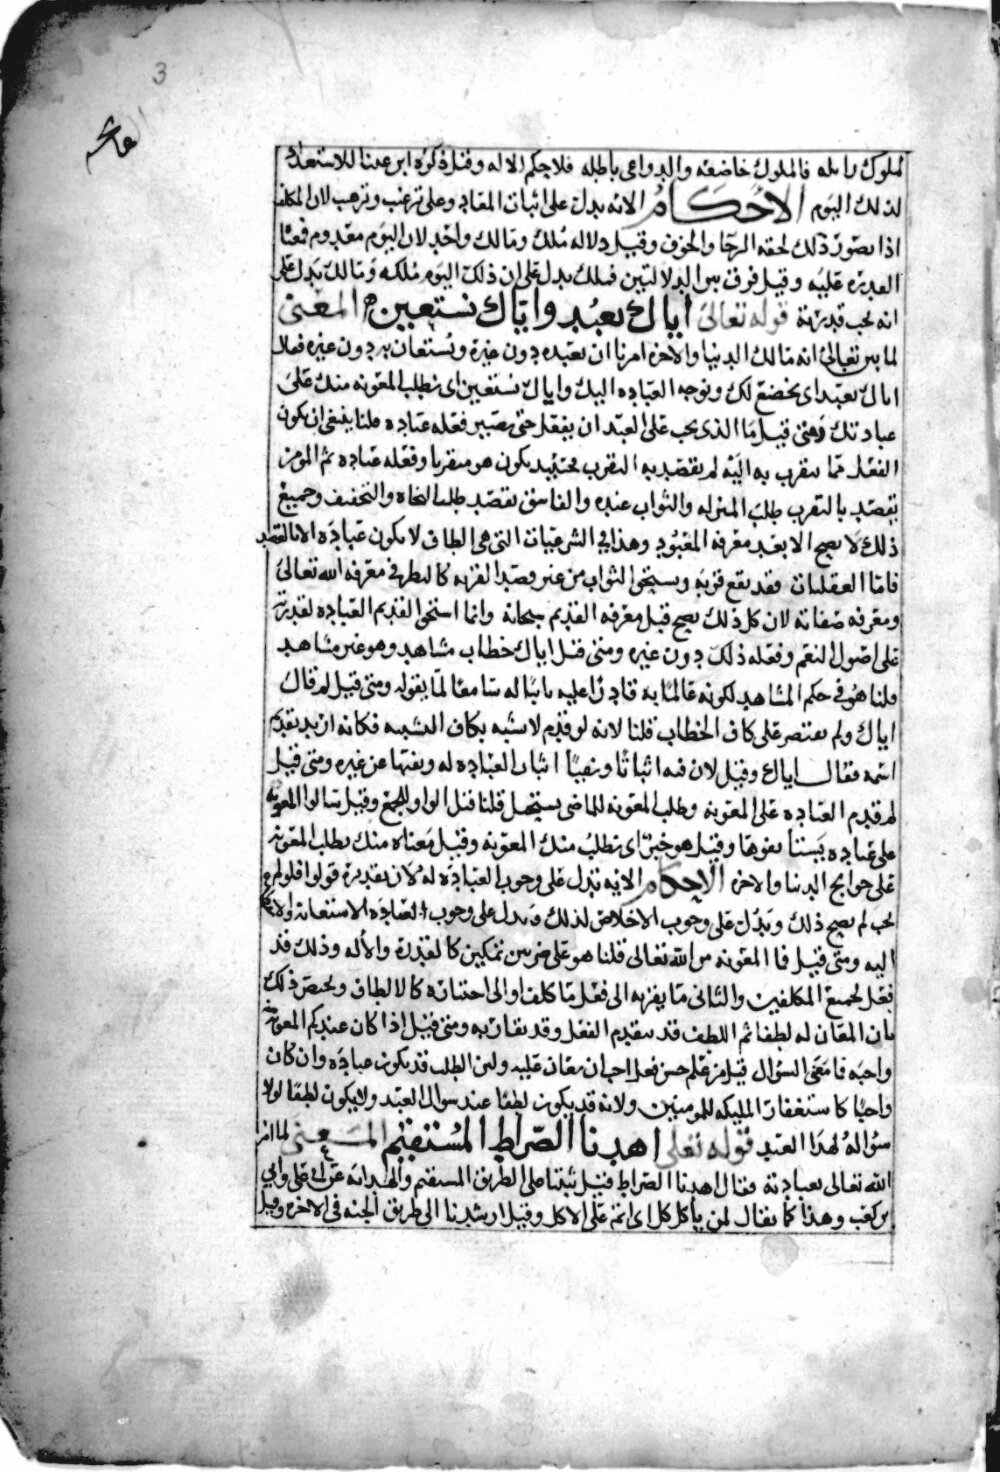 3
الفاتحة
الملوك زايله فالملوك خاضعه والدواعي باطله فلا حكم الا له وقيل ذكره ابن عينا للاستعداد
لذلك اليوم الأحكام الايه يدل على اثبات المعاد وعلى ترغيب وترهيب لان المكلف
اذا تصور ذلك لحقه الرجا والخوف وقيل دلاله ملك ومالك واحد لان اليوم معدوم فمعنا
القدره عليه وقيل فرق بين الدلالتين فملك يدل على ان ذلك اليوم ملكه ومالك يدل على
انه تحت قدرته قوله تعالى اياك نعبد واياك نستعين المعنى
لما بين تعالى انه مالك الدنيا والاخره امرنا ان نعبده دون غيره ونستعان به دون غيره فقال
اياك نعبد اي نخضع لك ونوجه العباده اليك واياك نستعين اي نطلب المعونه منك على
عبادتك ومتى قيل ما الذي يجب على العبد ان يفعل حتى يصير فعله عباده قلنا ينبغي ان يكون
الفعل مما يتقرب به اليه ثم يقصد به التقرب فحينئذ يكون هو متقربا وفعله عباده ثم المومن
يقصد بالتقرب طلب المنزله والثواب عنده والفاسق يقصد طلب النجاه والتخفيف وجميع
ذلك لا يصح الا بعد معرفه المعبود وهذا في الشرعيات التي هي الطاف لا يكون عباده الا بالقصد
فاما العقليات فقد تقع قربه ويستحق الثواب من غير قصد القربه كالنظر في معرفه الله تعالى
ومعرفه صفاته لان كل ذلك يصح قبل معرفه القديم سبحانه وانما استحق القديم العباده لقدرته
على اصول النعم وفعله ذلك دون غيره ومتى قيل اياك خطاب مشاهد وهو غير مشاهد
قلنا هو في حكم المشاهد لكونه عالما به قادرا عليه رائيا له سامعا لما يقوله ومتى قيل لم قال
اياك ولم يقتصر على كاف الخطاب قلنا لانه لو قدم لاشبه بكاف التشبيه فكانه اراد تقديم
اسمه فقال اياك وقيل لان فيه اثباتا ونفيا اثبات العباده له ونفيها عن غيره ومتى قيل
لم قدم العباده على المعونه وطلب المعونه للماضي يستحيل قلنا قيل الواو للجمع وقيل سالوا المعونه
على عباده يستانفونها وقيل هو خبر اي نطلب منك المعونه وقيل معناه منك نطلب المعونه
على حوايج الدنيا والاخره الاحكام الايه تدل على وجوب العباده له لان تقديره قولوا فلو لم
يجب لم يصح ذلك ويدل على وجوب الاخلاص لذلك ويدل على وجوب العباده الاستعانه
اليه ومتى قيل فما المعونه من الله تعالى قلنا هو على ضربين تمكين كالقدره والاله وذلك قد
فعل لجميع المكلفين والثاني ما يقربه الى فعل ما كلف او الى اختياره كالالطاف ويختص ذلك
بان المعان له لطفا ثم اللطف قد يتقدم الفعل وقد يقارنه ومتى قيل اذا كان عندكم المعونه
واجبه فما معنى السوال قيل من علم حسن فعل احسان معان عليه ولان الطلب قد يكون عباده وان كان
واجبا كاستغفار المليكه للمومنين ولانه قد يكون لطفا عند سوال العبد ولا يكون لطفا لولا
سواله لهذا العبد قوله تعالى اهدنا الصراط المستقيم المعنى لما امر
الله تعالى بعبادته فقال اهدنا الصراط قيل ثبتنا على الطريق المستقيم والهدايه عن علي وابي
بن كعب وهذا كما يقال لمن ياكل كل اي اثم على الاكل وقيل ارشدنا الى طريق الجنه في الاخره وقيل